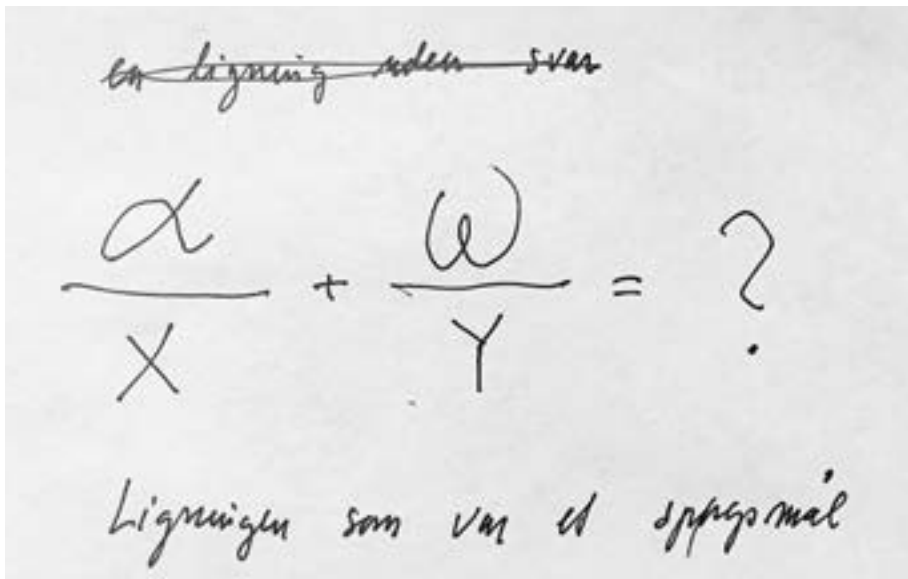 en ligning uden svar
α/X + ω/Y = ?
Ligningen som var et spørgsmål